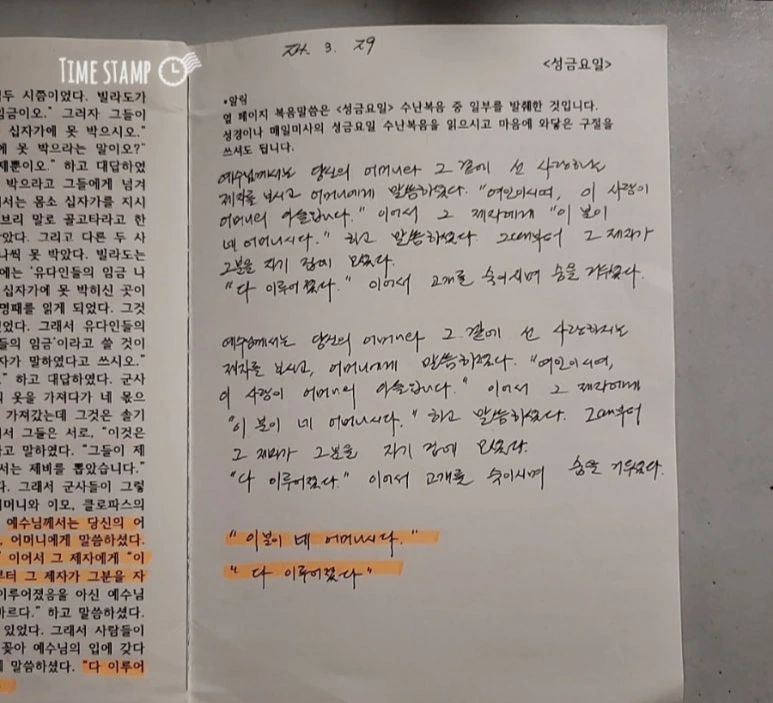 TIME STAMP
두 시쯤이었다. 빌라도가
임금이오.” 그러자 그들이
십자가에 못 박으시오.”
에 못 박으라는 말이오?”
제뿐이오.” 하고 대답하였
박으라고 그들에게 넘겨
서는 몸소 십자가를 지시
브리 말로 골고타라고 한
았다. 그리고 다른 두 사
나씩 못 박았다. 빌라도는
에는 ‘유다인들의 임금 나
십자가에 못 박히신 곳이
명패를 읽게 되었다. 그것
었었다. 그래서 유다인들의
들의 임금’이라고 쓸 것이
자가 말하였다고 쓰시오.”
” 하고 대답하였다. 군사
의 옷을 가져다가 네 몫으
가져갔는데 그것은 솔기
서 그들은 서로, “이것은
하고 말하였다. “그들이 제
서는 제비를 뽑았습니다.”
다. 그래서 군사들이 그렇
머니와 이모, 클로파스의
예수님께서는 당신의 어
, 어머니에게 말씀하셨다.
” 이어서 그 제자에게 “이
부터 그 제자가 그분을 자
이루어졌음을 아신 예수님
마르다.” 하고 말씀하셨다.
있었다. 그래서 사람들이
꽂아 예수님의 입에 갖다
말씀하셨다. “다 이루어
24. 3. 29
<성금요일>
•알림
옆 페이지 복음말씀은 <성금요일> 수난복음 중 일부를 발췌한 것입니다.
성경이나 매일미사의 성금요일 수난복음을 읽으시고 마음에 와닿은 구절을
쓰셔도 됩니다.
예수님께서는 당신의 어머니와 그 곁에 선 사랑하시는
제자를 보시고 어머니에게 말씀하셨다. “여인이시여, 이 사람이
어머니의 아들입니다.” 이어서 그 제자에게 “이 분이
네 어머니시다.” 하고 말씀하셨다. 그때부터 그 제자가
그분을 자기 집에 모셨다.
“다 이루어졌다.” 이어서 고개를 숙이시며 숨을 거두셨다.
예수님께서는 당신의 어머니와 그 곁에 선 사랑하시는
제자를 보시고, 어머니에게 말씀하셨다. “여인이시여,
이 사람이 어머니의 아들입니다.” 이어서 그 제자에게
“이 분이 네 어머니시다.” 하고 말씀하셨다. 그때부터
그 제자가 그분을 자기 집에 모셨다.
“다 이루어졌다.” 이어서 고개를 숙이시며 숨을 거두셨다.
“이분이 네 어머니시다.”
“다 이루어졌다”